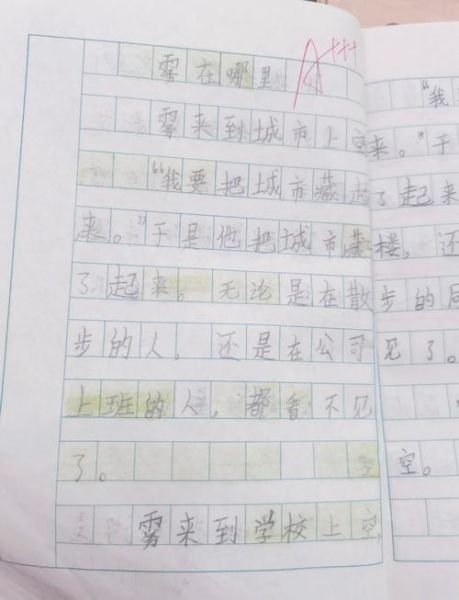 雾在哪里
A+++
雾来到城市上空
“我要把城市藏起
来。”于是他把城市藏
了起来。无论是在散
步的人，还是在公司
上班的人，都看不见
了。
雾来到学校上空
“我
来。”于
了起来
楼，还
步的
见了。
空。